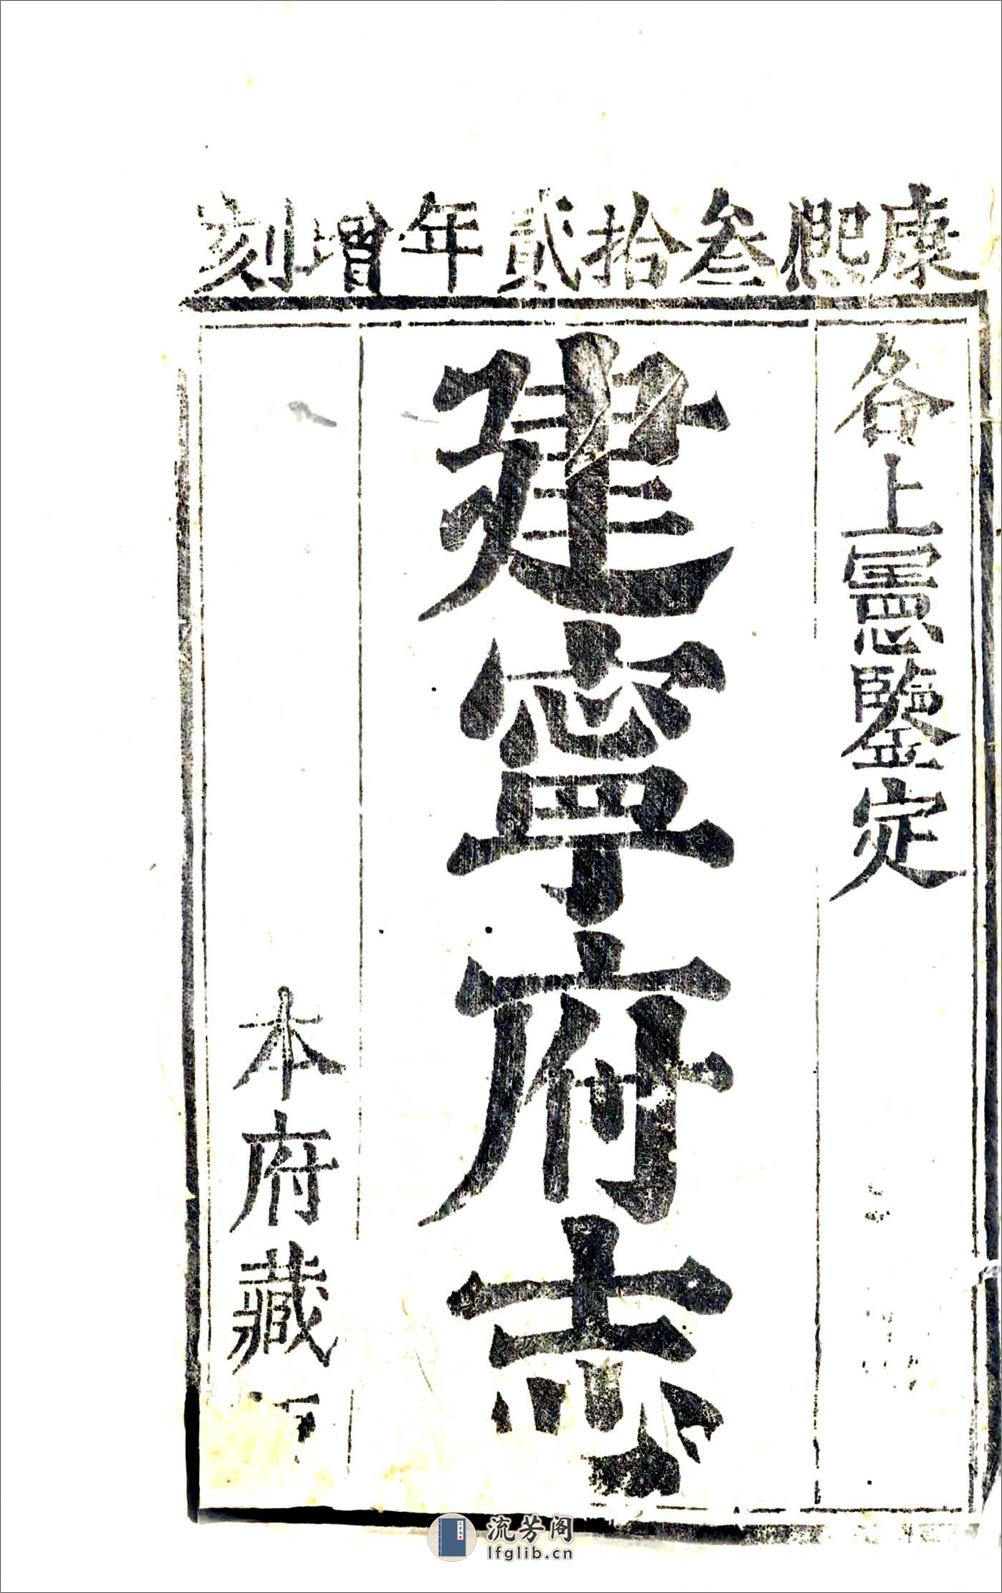 康熙叄拾貳年增刻
各上憲鑒定
建寧府志
本府藏
流芳阁
lfglib.cn